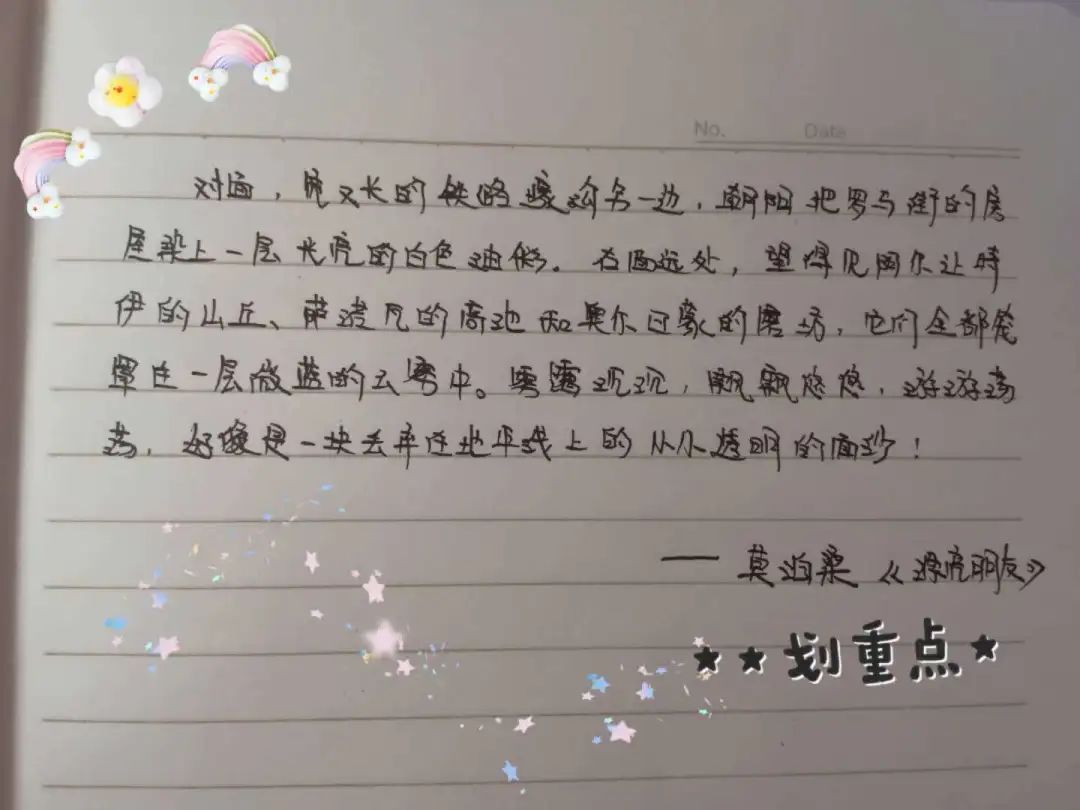 No.    Date
对面，宽又长的铁路壕沟另一边，朝阳把罗马街的房
屋染上一层光亮的白色油彩。右面远处，望得见阿尔让特
伊的山丘、萨诺瓦的高地和奥尔日蒙的磨坊，它们全部笼
罩在一层微蓝的云雾中。雾霭沉沉，飘飘悠悠，游游荡
荡，好像是一块丢弃在地平线上的小小透明的面纱！
——莫泊桑《漂亮朋友》
★★划重点★